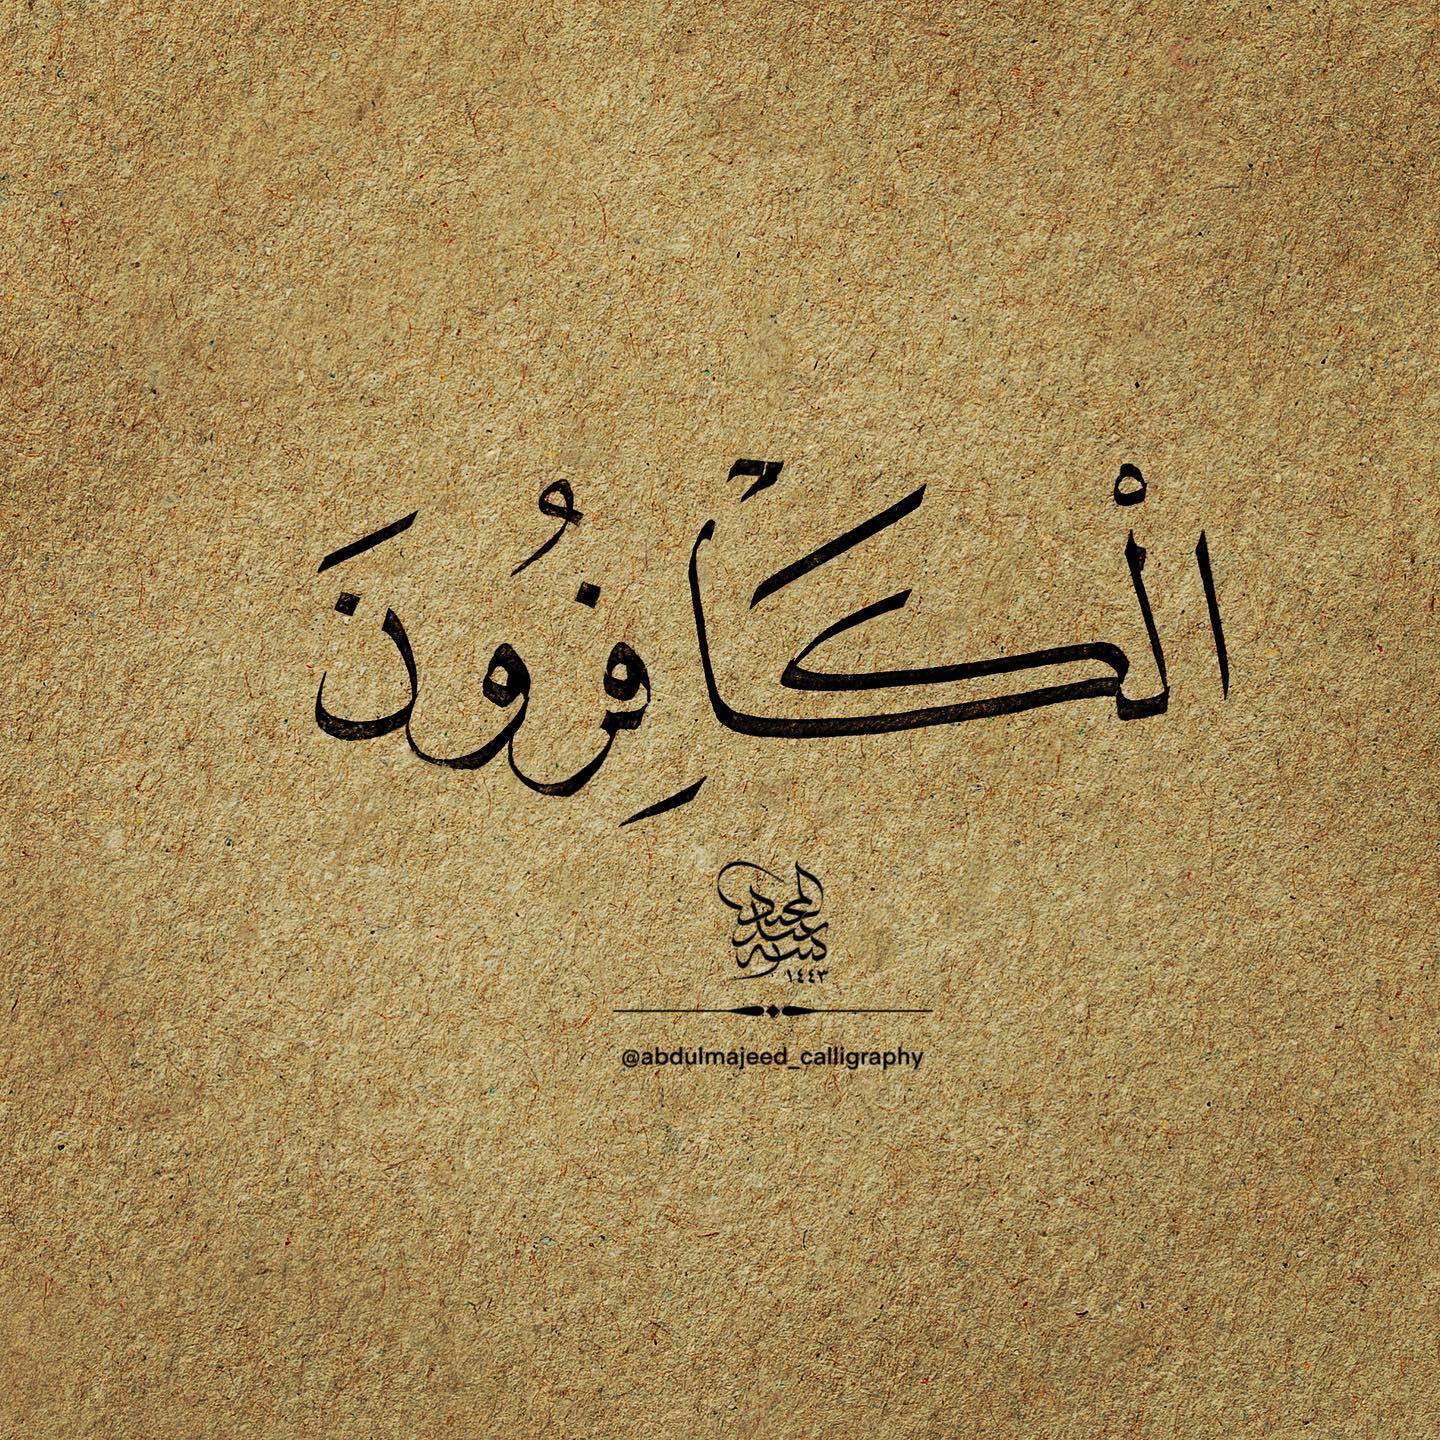 الْكَافِرُونَ
كتبه
عبد
المجيد
١٤٤٣
@abdulmajeed_calligraphy